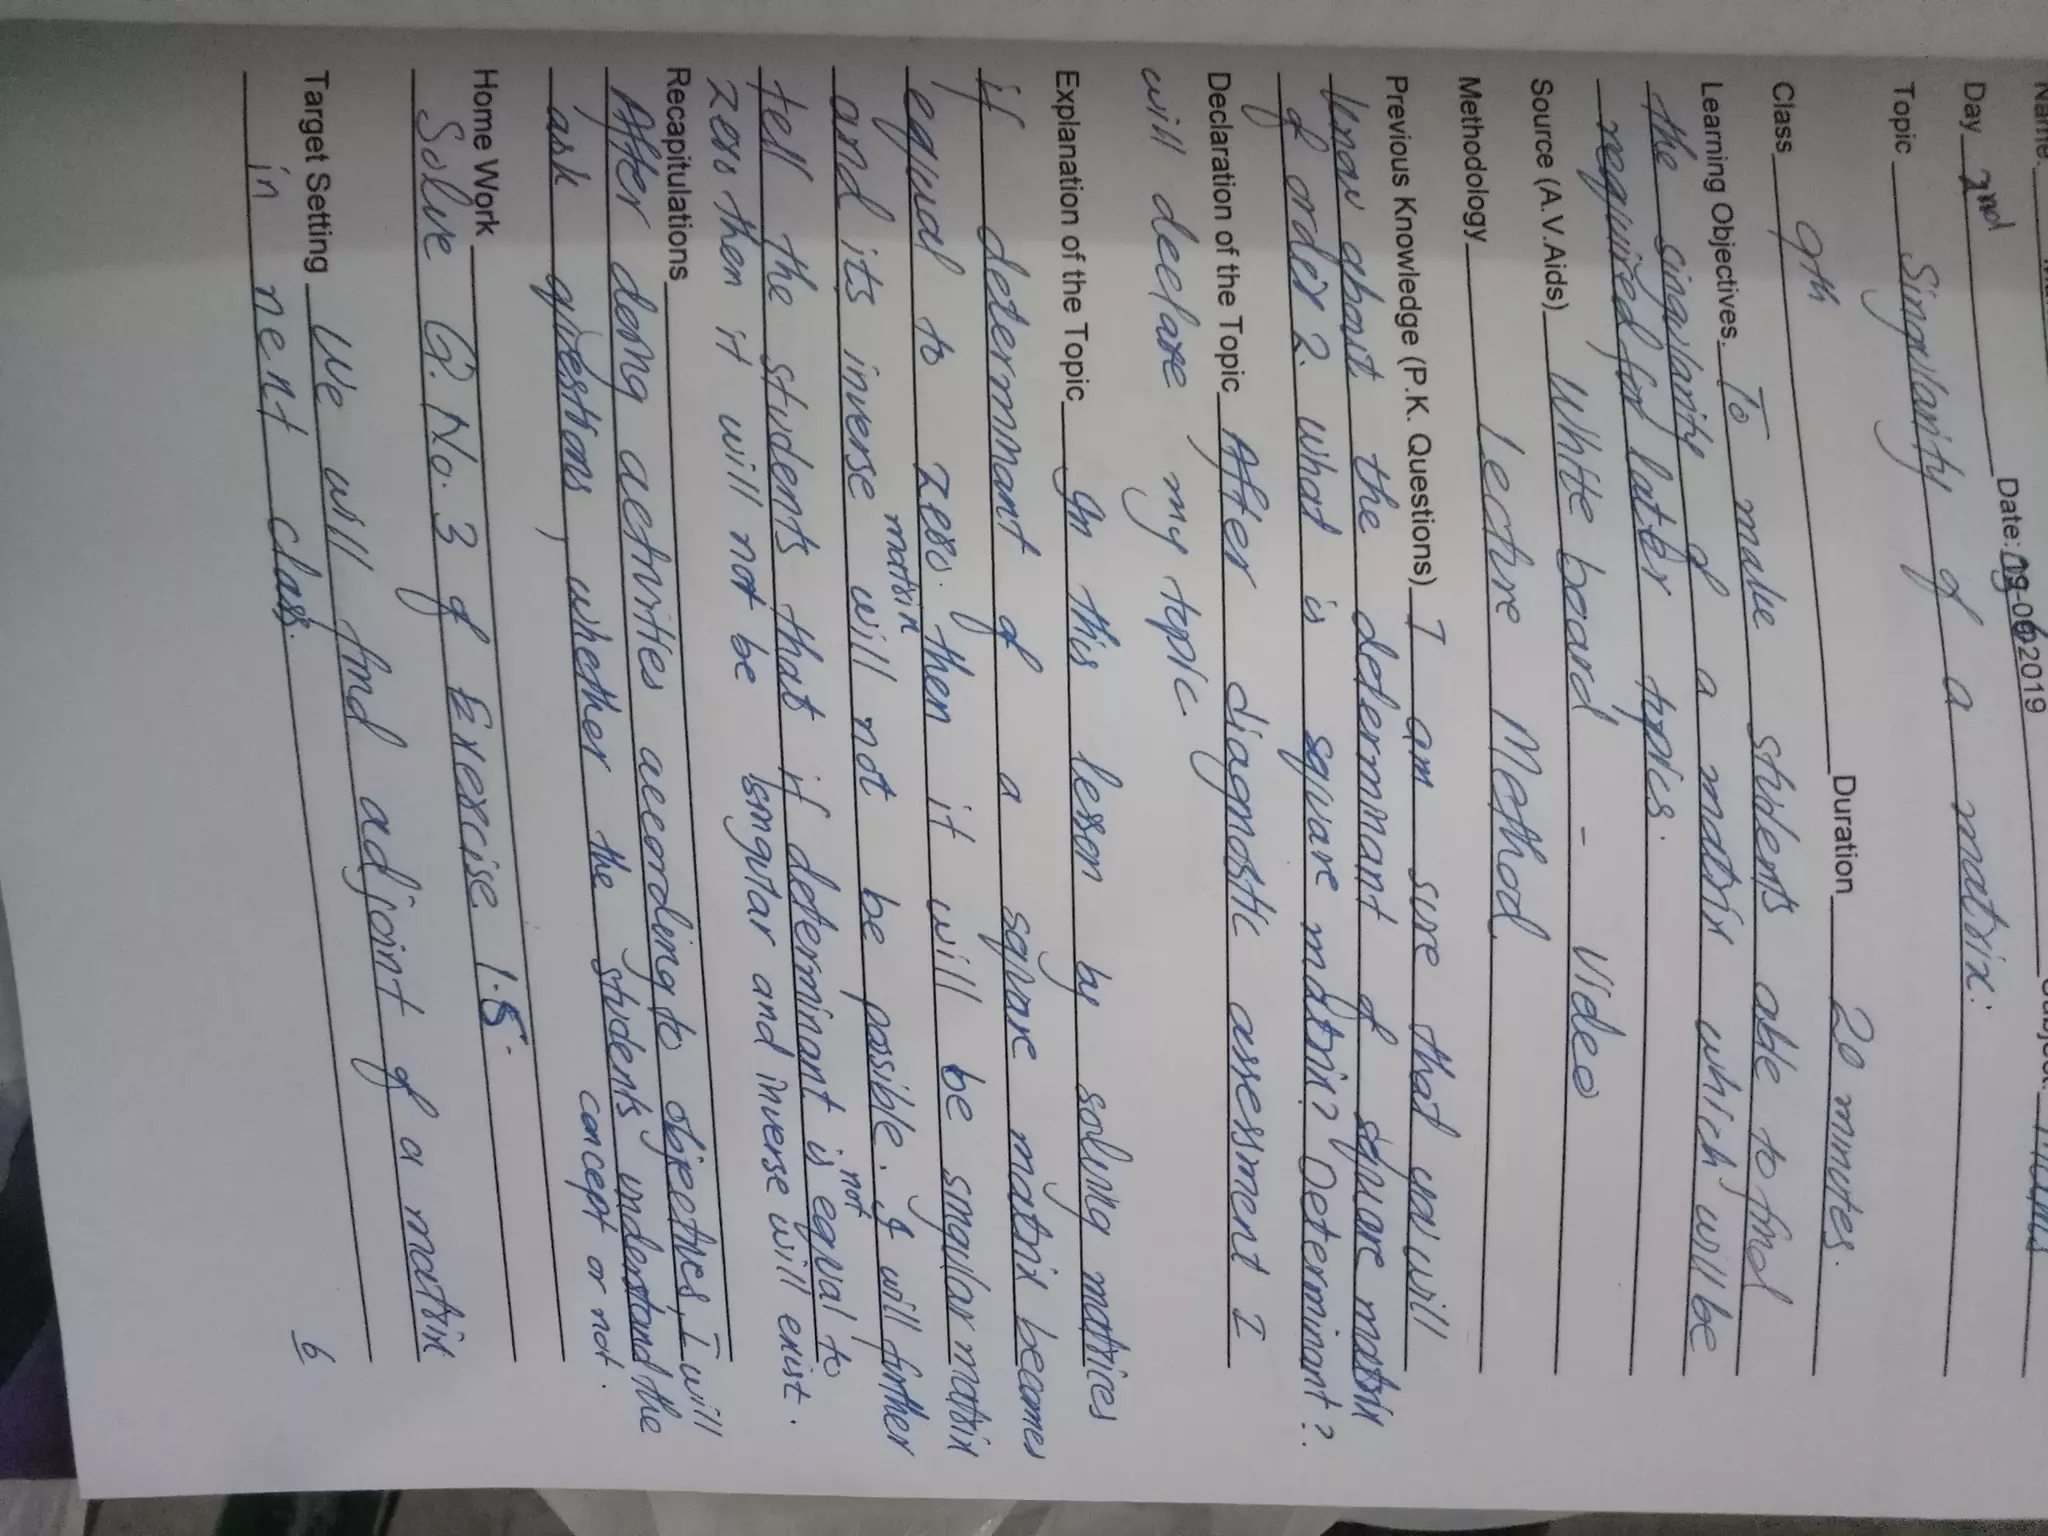 Name
Day 2nd Date: 19-06-2019
Topic Singularity of a matrix.
Class 9th Duration 20 minutes.
Learning Objectives. To make students able to find
the singularity of a matrix which will be
required for later topics.
Source (A.V.Aids) White board - Video
Methodology lecture Method
Previous Knowledge (P.K. Questions) I am sure that they will
know about the determinant of square matrix
of order 2. what is square matrix? Determinant?.
Declaration of the Topic After diagnostic assessment I
will declare my topic.
Explanation of the Topic In this lesson by solving matrices
if determinant of a square matrix becomes
equal to zero. then it will be singular matrix
and its inverse matrix will not be possible. I will further
tell the students that if determinant is not equal to
zero then it will not be singular and inverse will exist.
Recapitulations
After doing activities according to objectives, I will
ask questions, whether the students understand the
concept or not.
Home Work
Solve Q. No. 3 of Exexcise 1.5.
Target Setting We will find adjoint of a matrix
in next class.
6